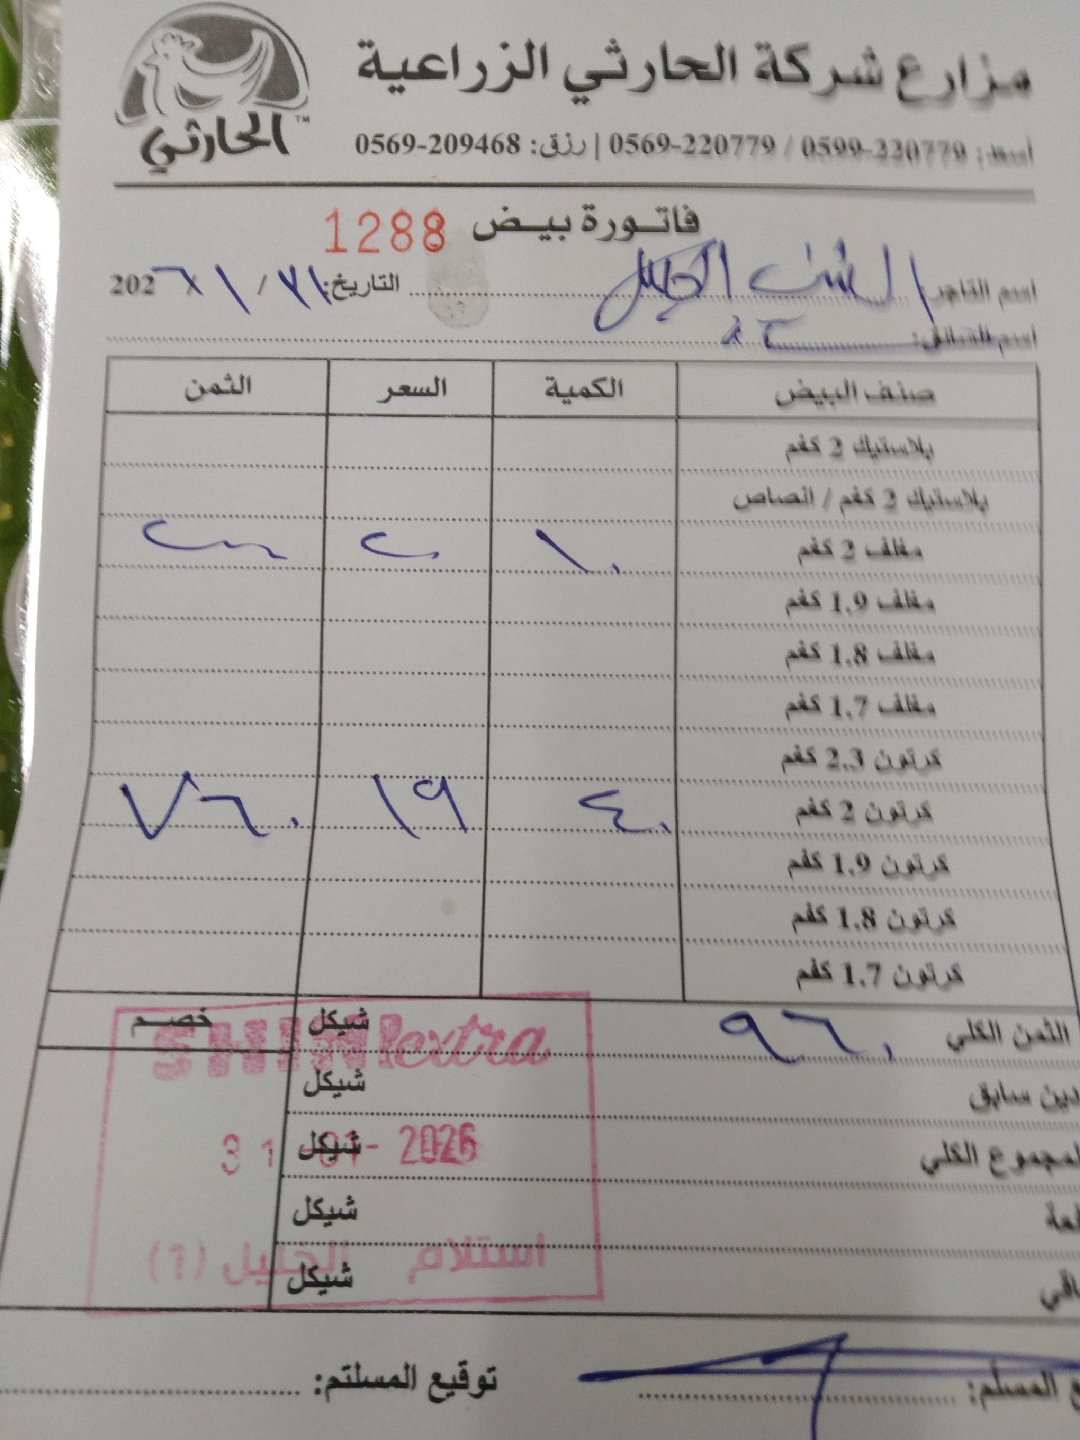 الحارثي™
مزارع شركة الحارثي الزراعية
أسعد: 0599-220779 / 0569-220779 | رزق: 0569-209468
فاتورة بيض 1288
اسم التاجر: الشني الخليل التاريخ: ٣١ / ١ / 202٦
اسم السائق:
صنف البيض الكمية السعر الثمن
بلاستيك 2 كغم
بلاستيك 2 كغم / انصاص
مغلف 2 كغم ١٠ ٢٠ ٢٠٠
مغلف 1.9 كغم
مغلف 1.8 كغم
مغلف 1.7 كغم
كرتون 2.3 كغم
كرتون 2 كغم ٤٠ ١٩ ٧٦٠
كرتون 1.9 كغم
كرتون 1.8 كغم
كرتون 1.7 كغم
الثمن الكلي ٩٦٠ شيكل خصم
دين سابق شيكل
المجموع الكلي شيكل
شيكل
شيكل
SHINI extra
31-01-2026
استلام الخليل (1)
المسلم: توقيع المستلم: